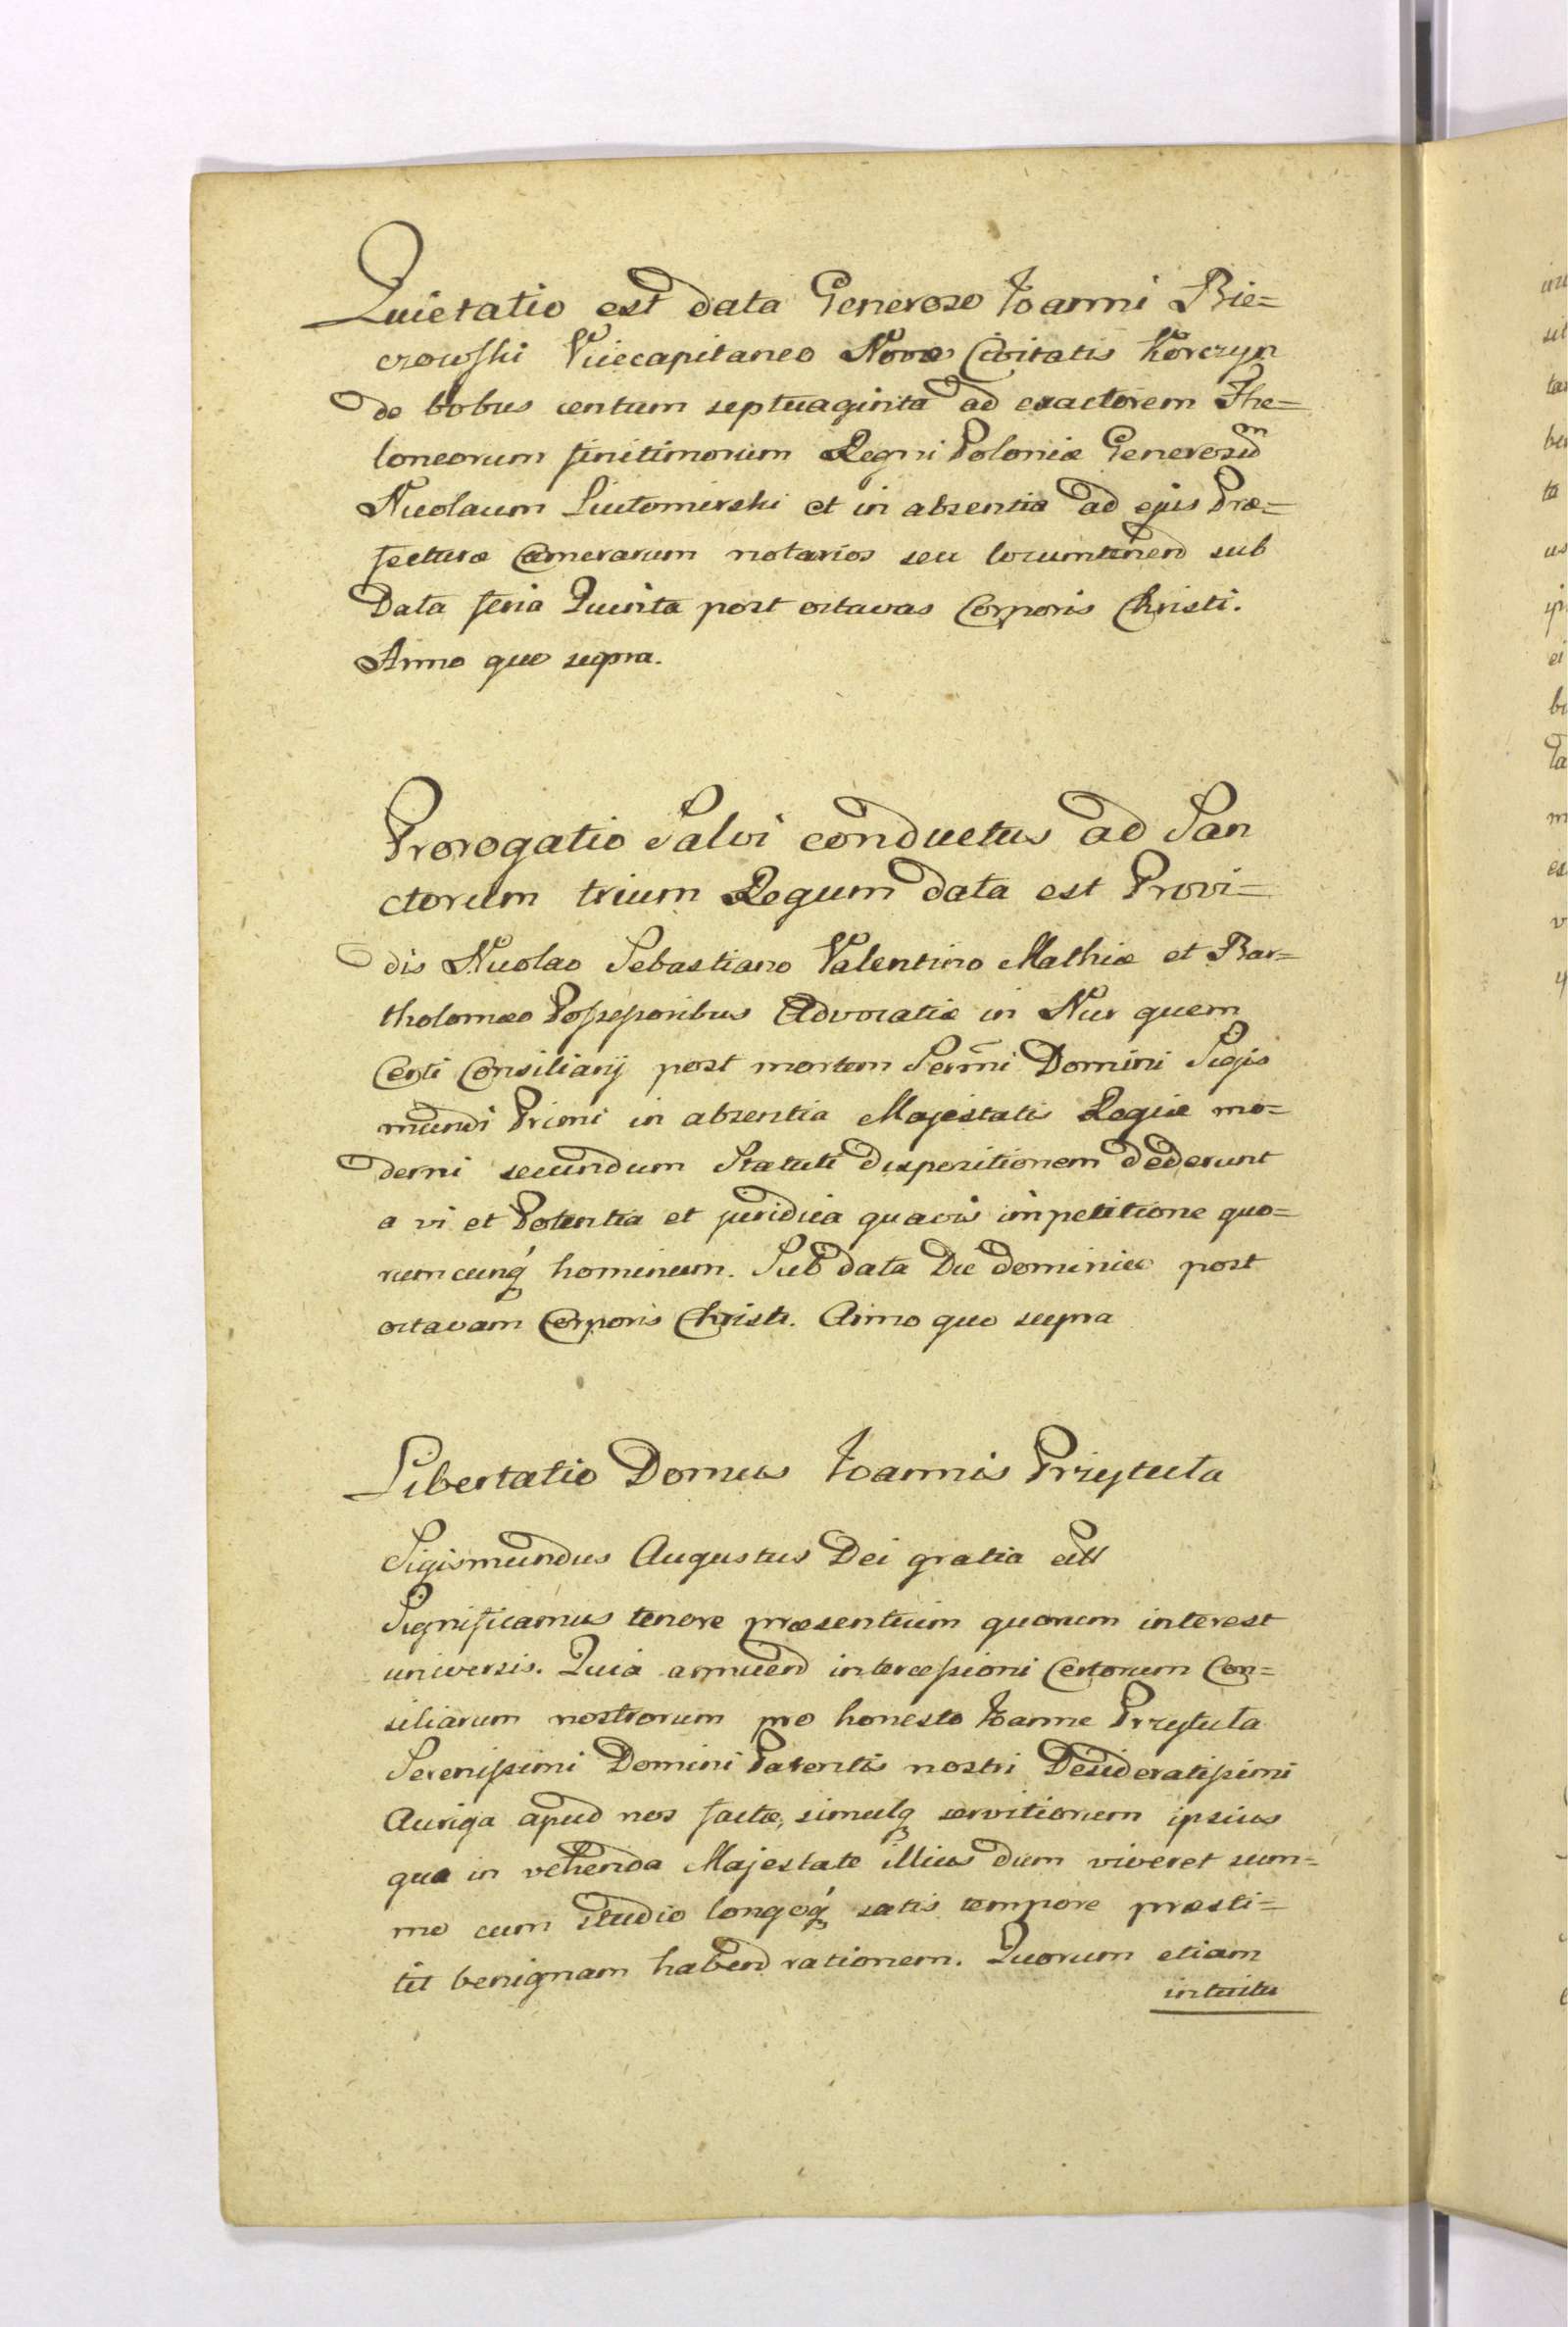 Quietatio est data Generoso Joanni Bie=
czowski Vicecapitaneo Novæ Civitatis Korczyn
de bobus centum septuaginta ad exactorem The=
loneorum finitimorum Regni Poloniæ Generosum
Nicolaum Lutomirski et in absentia ad ejus Præ=
fecturæ Camerarum notarios seu locumtenend sub
Data feria Quinta post octavas Corporis Christi.
Anno quo supra.
Prorogatio Salvi conductus ad San
ctorum trium Regum data est Provi=
dis Nicolao Sebastiano Valentino Mathiæ et Bar=
tholomæo Possessoribus Advocatiæ in Nur quem
Certi Consiliarij post mortem Sermi Domini Sigis
mundi Primi in absentia Majestatis Regiæ mo=
derni secundum Statuti dispositionem dederunt
a vi et Potentia et juridica quavis impetitione quo=
rumcunq hominum. Sub data Die dominico post
octavam Corporis Christi. Anno quo supra
Libertatio Domus Joannis Przytuła
Sigismundus Augustus Dei gratia ett
Significamus tenore præsentium quorum interest
universis. Quia annuend intercessioni Certorum Con=
siliarum nostrorum pro honesto Joanne Przytuła
Serenissimi Domini Parentis nostri Desideratissimi
Auriga apud nos factæ, simulq servitiorum ipsius
quæ in vehenda Majestate illius dum viveret sum=
mo cum studio longoq satis tempore præsti=
tit benignam habend rationem. Quorum etiam
intuitu